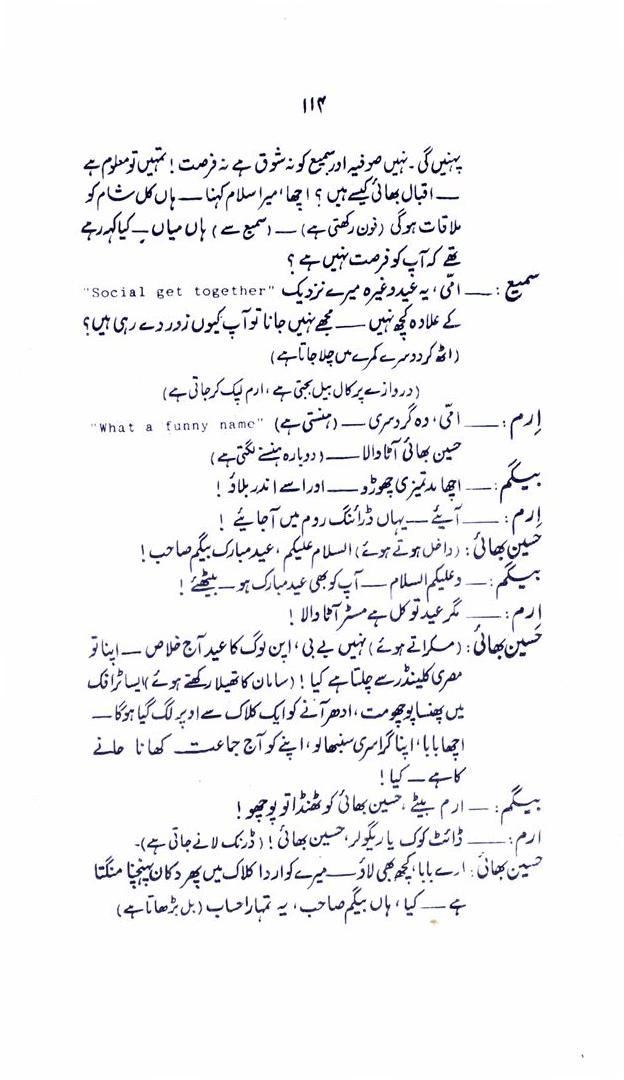 ۱۱۴
پہنیں گی ۔ نہیں صوفیہ اور سمیع کو نہ شوق ہے نہ فرصت ! تمہیں تو معلوم ہے
— اقبال بھائی کیسے ہیں ؟ اچھا، میرا سلام کہنا — ہاں کل شام کو
ملاقات ہوگی (فون رکھتی ہے) — (سمیع سے) ہاں میاں — کیا کہہ رہے
تھے کہ آپ کو فرصت نہیں ہے ؟
سمیع : — امّی، یہ عید وغیرہ میرے نزدیک "Social get together"
کے علاوہ کچھ نہیں — مجھے نہیں جانا تو آپ کیوں زور دے رہی ہیں؟
(اٹھ کر دوسرے کمرے میں چلا جاتا ہے)
(دروازے پر کال بیل بجتی ہے ، ارم لپک کر جاتی ہے)
اِرم : — امّی، وہ گروسری — (ہنستی ہے) "What a funny name"
حسین بھائی آٹا والا — (دوبارہ ہنسنے لگتی ہے)
بیگم : — اچھا بدتمیزی چھوڑو — اور اسے اندر بلاؤ !
اِرم : — آیئے — یہاں ڈرائنگ روم میں آجایئے !
حسین بھائی : (داخل ہوتے ہوئے) السلام علیکم ، عید مبارک بیگم صاحب !
بیگم : — وعلیکم السلام — آپ کو بھی عید مبارک ہو — بیٹھئے !
اِرم : — مگر عید تو کل ہے مسٹر آٹا والا !
حسین بھائی : (مسکراتے ہوئے) نہیں بے بی، اپن لوگ کا عید آج خلاص — اپنا تو
مصری کلینڈر سے چلتا ہے کیا ! (سامان کا تھیلا رکھتے ہوئے) ایسا ٹرافک
میں پھنسا پوچھو مت، ادھر آنے کو ایک کلاک سے اوپر لگ گیا ہوگا —
اچھا بابا، اپنا گراسری سنبھالو، اپنے کو آج جماعت کھانا جانے
کا ہے — کیا !
بیگم : — ارم بیٹے ، حسین بھائی کو ٹھنڈا تو پوچھو !
ارم : — ڈائٹ کوک یا ریگولر، حسین بھائی ! (ڈرنک لانے جاتی ہے)-
حسین بھائی : ارے بابا، کچھ بھی لاؤ — میرے کو اردا کلاک میں پھر دکان پہنچنا منگتا
ہے — کیا، ہاں بیگم صاحب ، یہ تمہارا حساب (بل بڑھاتا ہے)